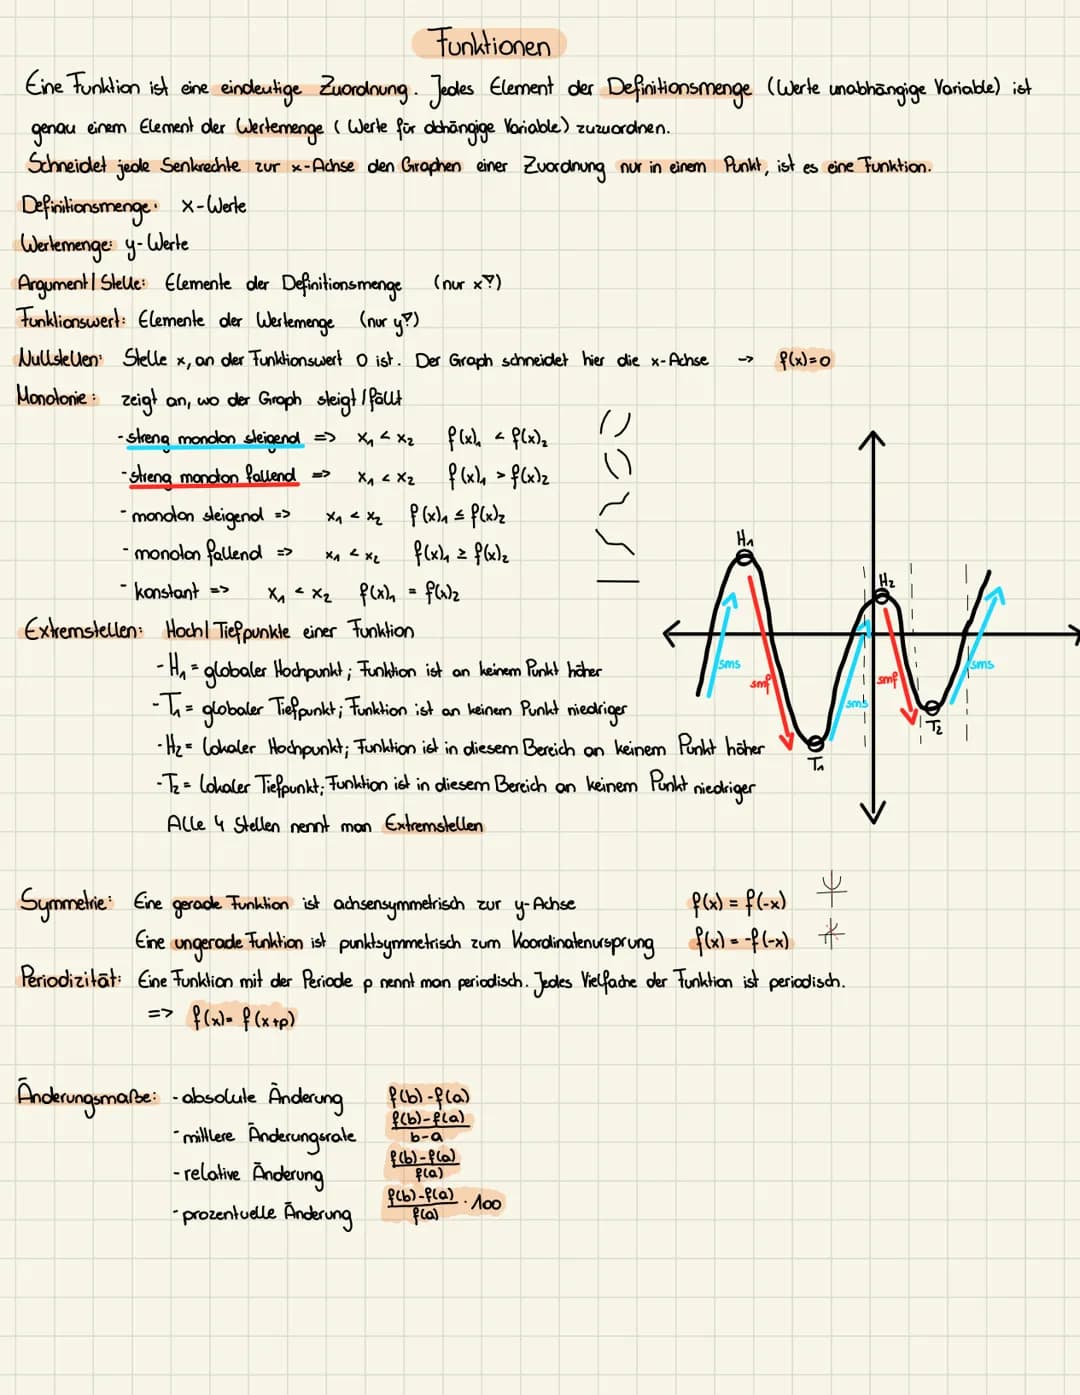 Funktionen
Eine Funktion ist eine eindeutige Zuordnung. Jedes Element der Definitionsmenge (Werte unabhängige Variable) ist
genau einem Element der Wertemenge (Werte für abhängige Variable) zuzuordnen.
Schneidet jede Senkrechte zur x-Achse den Graphen einer Zuordnung nur in einem Punkt, ist es eine Funktion.
Definitionsmenge: x-Werte
Wertemenge: y-Werte
Argument/Stelle: Elemente der Definitionsmenge (nur x!)
Funktionswert: Elemente der Wertemenge (nur y!)
Nullstellen: Stelle x, an der Funktionswert 0 ist. Der Graph schneidet hier die x-Achse -> f(x)=0
Monotonie: zeigt an, wo der Graph steigt/fällt
- streng monoton steigend => x₁ < x₂ f(x)₁ < f(x)₂
- streng monoton fallend => x₁ < x₂ f(x)₁ > f(x)₂
- monoton steigend => x₁ < x₂ f(x)₁ ≤ f(x)₂
- monoton fallend => x₁ < x₂ f(x)₁ ≥ f(x)₂
- konstant => x₁ < x₂ f(x)₁ = f(x)₂
Extremstellen: Hoch/Tiefpunkte einer Funktion
- H₁ = globaler Hochpunkt; Funktion ist an keinem Punkt höher
- T₁ = globaler Tiefpunkt; Funktion ist an keinem Punkt niedriger
- H₂ = lokaler Hochpunkt; Funktion ist in diesem Bereich an keinem Punkt höher
- T₂ = lokaler Tiefpunkt; Funktion ist in diesem Bereich an keinem Punkt niedriger
Alle 4 Stellen nennt man Extremstellen
H₁
H₂
sms
smf
sms
smf
sms
T₁
T₂
Symmetrie: Eine gerade Funktion ist achsensymmetrisch zur y-Achse f(x) = f(-x)
Eine ungerade Funktion ist punktsymmetrisch zum Koordinatenursprung f(x) = -f(-x)
Periodizität: Eine Funktion mit der Periode p nennt man periodisch. Jedes Vielfache der Funktion ist periodisch.
=> f(x) = f(x+p)
Änderungsmaße: - absolute Änderung f(b)-f(a)
- mittlere Änderungsrate f(b)-f(a) / b-a
- relative Änderung f(b)-f(a) / f(a)
- prozentuelle Änderung f(b)-f(a) / f(a) · 100